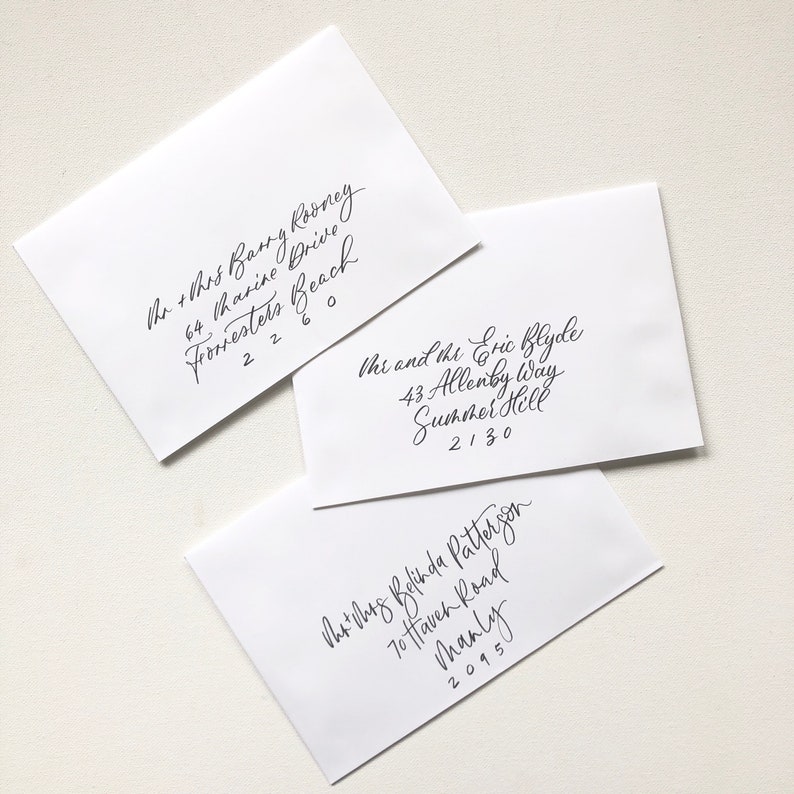 Mr + Mrs Barry Rooney
64 Marine Drive
Forresters Beach
2260
Mr and Mr Eric Blyde
43 Allenby Way
Summer Hill
2130
Mr + Mrs Belinda Patterson
70 Haven Road
Manly
2095